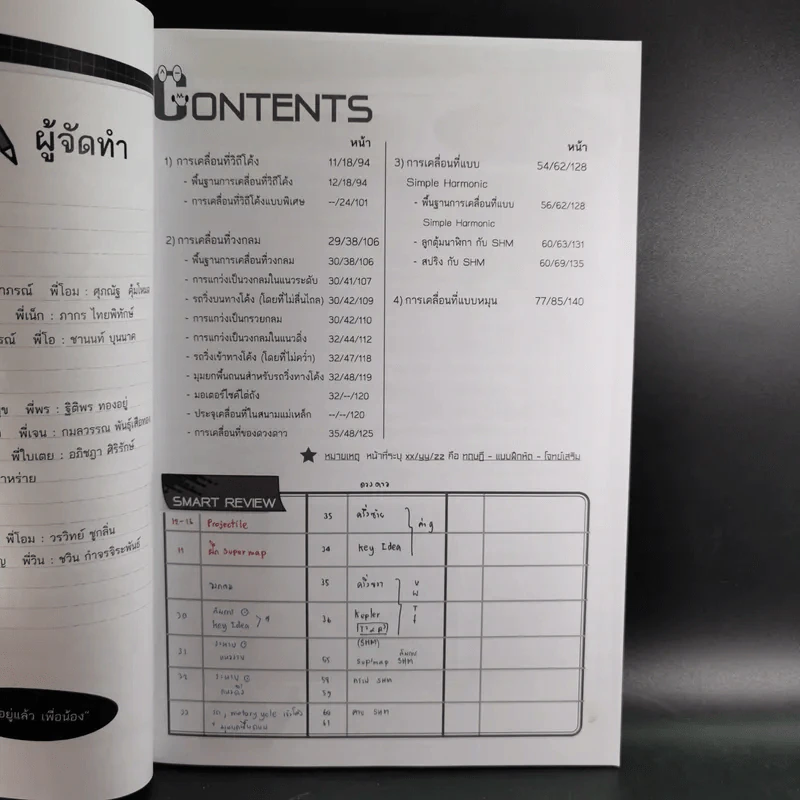 ผู้จัดทำ
พี่โอม : ศุภณัฐ
พี่เน็ก : ภากร ไทยพิทักษ์
พี่โอ : ชานนท์ บุนนาค
พี่พร : ฐิติพร ทองอยู่
พี่เจน : กมลวรรณ
พี่ใบเตย : อภิชฎา ศิริรักษ์
พี่โอม : วรวิทย์ ชูกลิ่น
พี่วิน : ชวิน กำจรจิระพันธ์
อยู่แล้ว เพื่อน้อง"
CONTENTS
หน้า
1) การเคลื่อนที่วิถีโค้ง 11/18/94
- พื้นฐานการเคลื่อนที่วิถีโค้ง 12/18/94
- การเคลื่อนที่วิถีโค้งแบบพิเศษ --/24/101
2) การเคลื่อนที่วงกลม 29/38/106
- พื้นฐานการเคลื่อนที่วงกลม 30/38/106
- การแกว่งเป็นวงกลมในแนวระดับ 30/41/107
- รถวิ่งบนทางโค้ง (โดยที่ไม่ลื่นไถล) 30/42/109
- การแกว่งเป็นกรวยกลม 30/42/110
- การแกว่งเป็นวงกลมในแนวดิ่ง 32/44/112
- รถวิ่งเข้าทางโค้ง (โดยที่ไม่คว่ำ) 32/47/118
- มุมยกพื้นถนนสำหรับรถวิ่งทางโค้ง 32/48/119
- มอเตอร์ไซค์ไต่ถัง 32/--/120
- ประจุเคลื่อนที่ในสนามแม่เหล็ก --/--/120
- การเคลื่อนที่ของดวงดาว 35/48/125
หน้า
3) การเคลื่อนที่แบบ 54/62/128
Simple Harmonic
- พื้นฐานการเคลื่อนที่แบบ 56/62/128
Simple Harmonic
- ลูกตุ้มนาฬิกา กับ SHM 60/63/131
- สปริง กับ SHM 60/69/135
4) การเคลื่อนที่แบบหมุน 77/85/140
หมายเหตุ หน้าที่ระบุ xx/yy/zz คือ ทฤษฎี - แบบฝึกหัด - โจทย์เสริม
SMART REVIEW
ดวงดาว
Projectile 35
17 Supermap 34 Key Idea
วงกลม 35
30 Key Idea 36 Kepler
(SHM)
55 SHM
กราฟ SHM
33 60 SHM
61